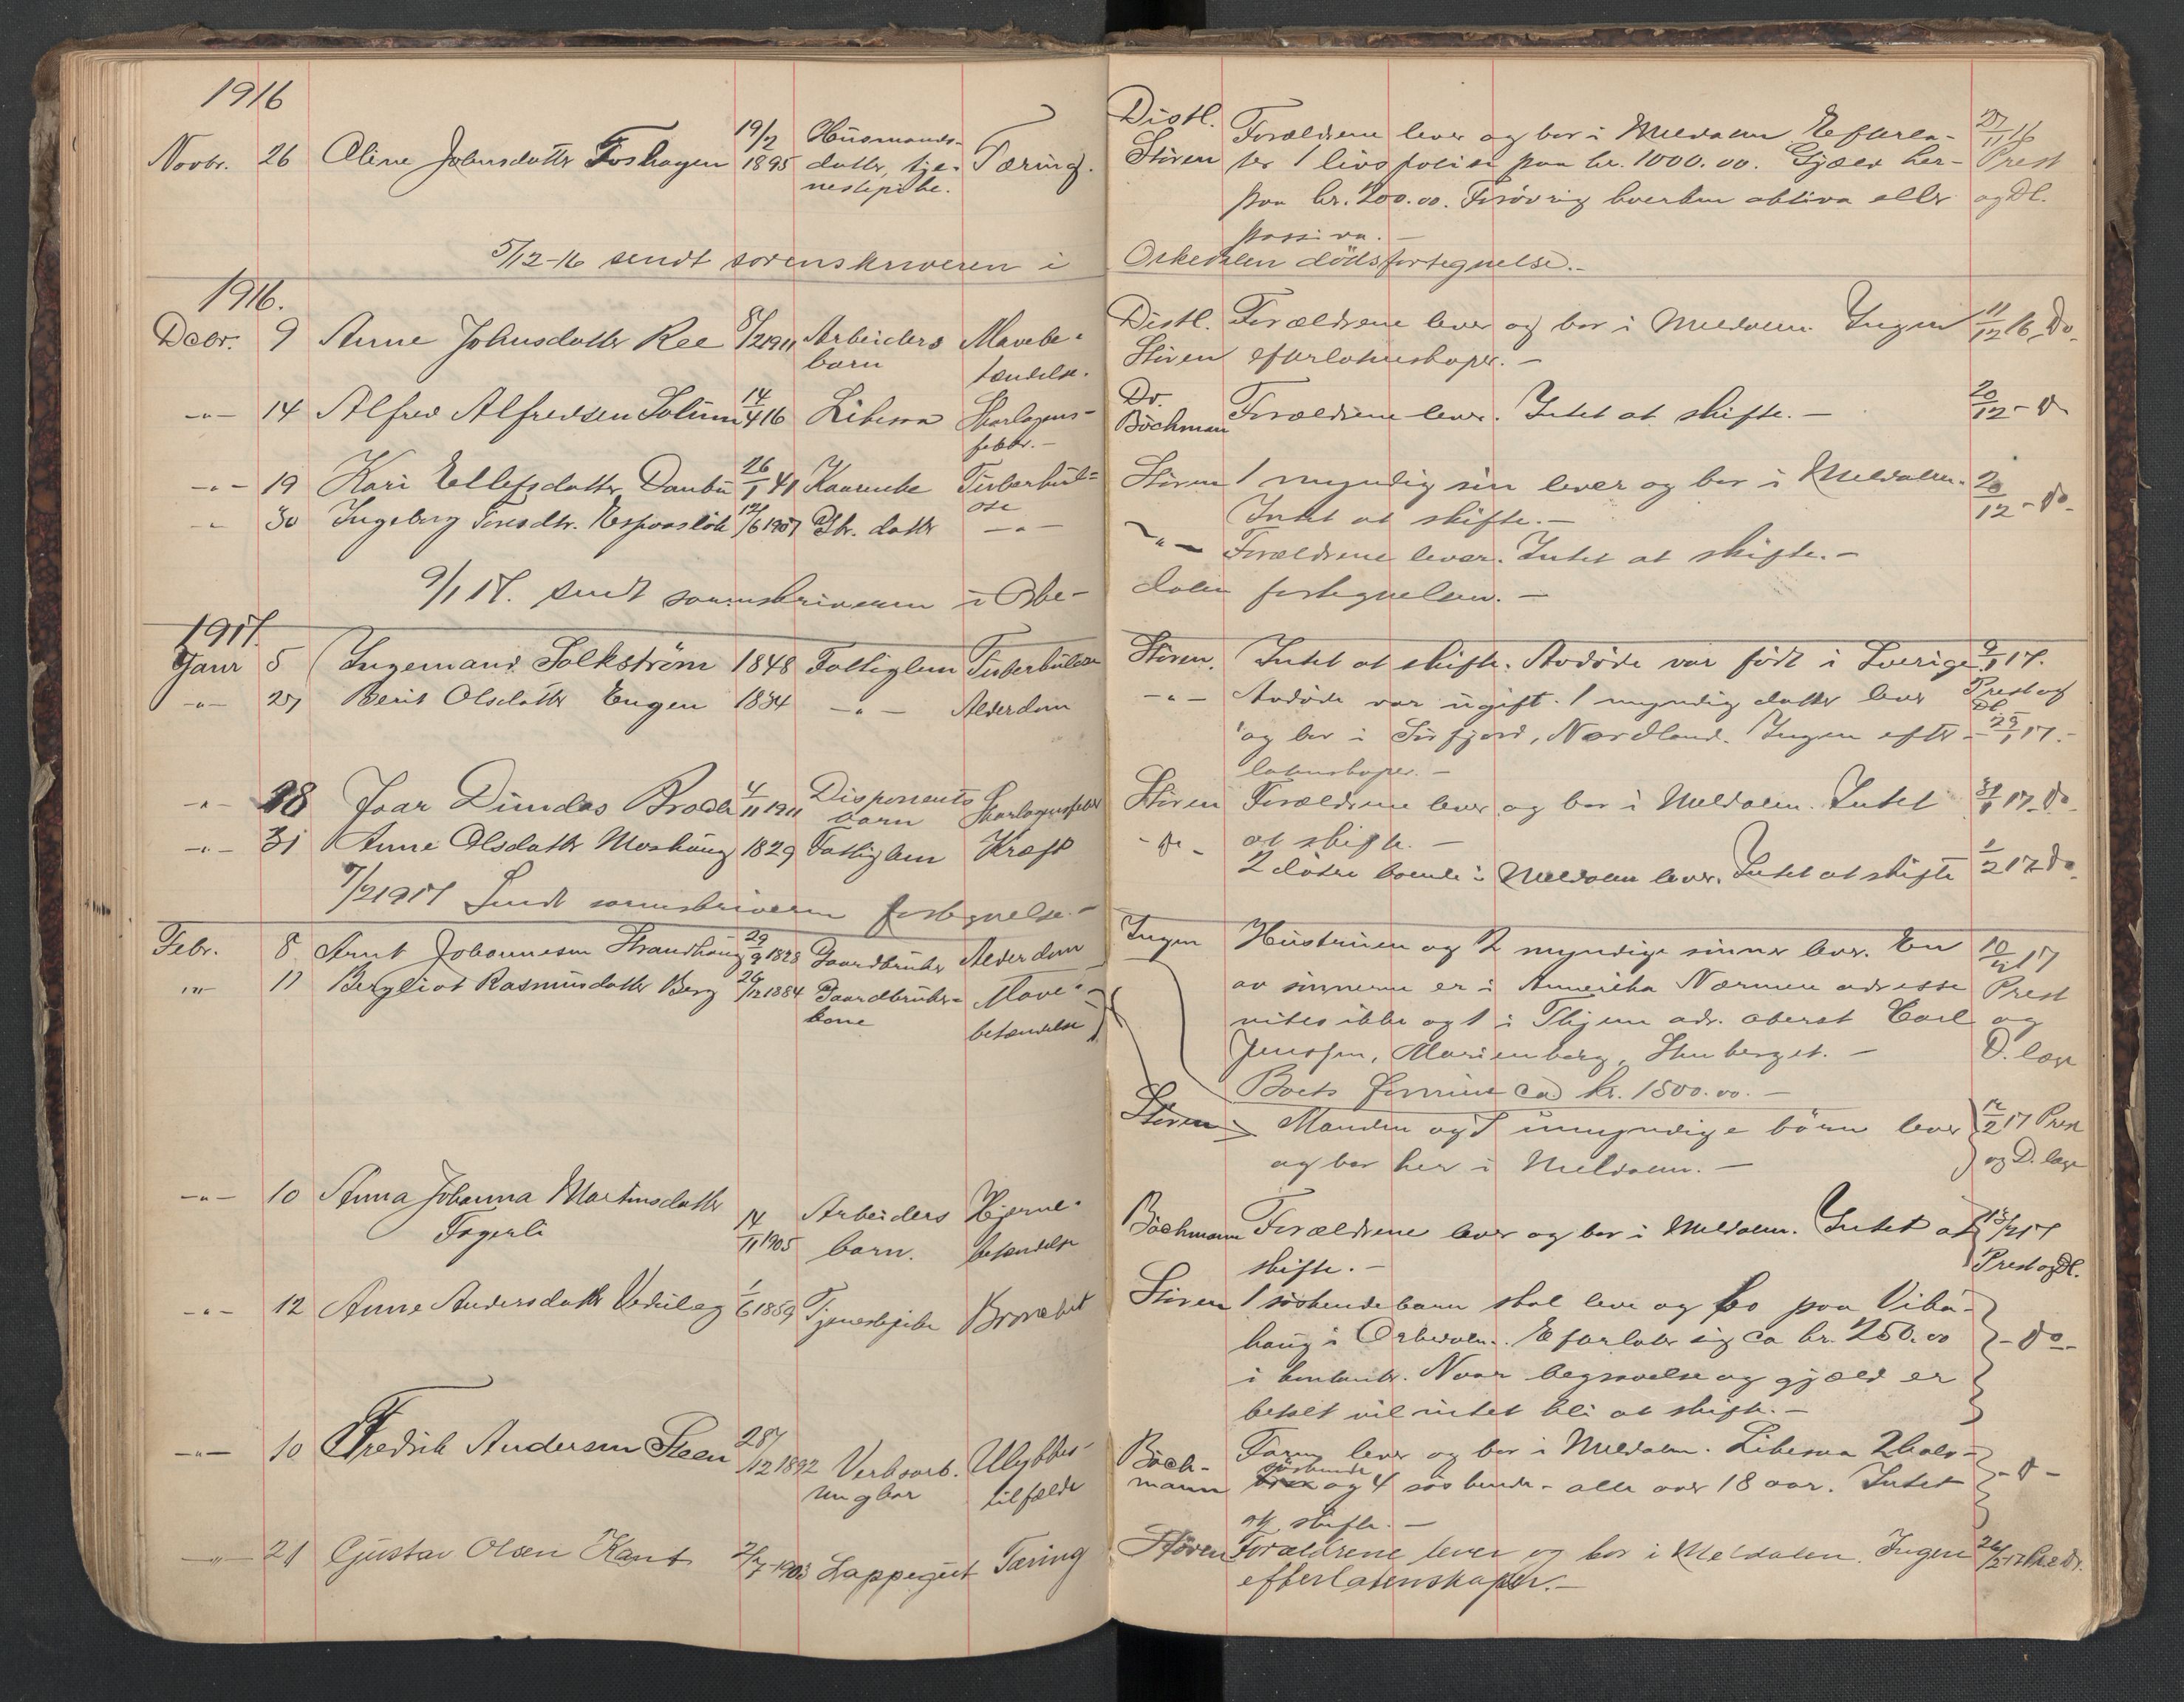 1916
Novbr. 26 Oline Johnsdatter Foshagen 19/2 1895 Husmands- datter, tje- nestepike. Tæring.
5/12-16 sendt sorenskriveren i
1916.
Decbr. 9 Anne Johnsdatter Ree 8/2 1911 Arbeiders barn Mavebe- tændelse.
-"- 14 Alfred Alfredsen Solum 14/4 16 Skarlagens- feber.-
-"- 19 Kari Ellefsdatter 26/1 41 Tuberkul- ose
-"- 30 Ingeborg 12/6 1907 datter -"-
9/1 17. sendt sorenskriveren i Orke-
1917.
Janr 5 Ingemand 1848 Fattiglem Tuberkulose
-"- 27 Berit Olsdatter Engen 1834 -"- Alderdom
-"- 28 Ivar Dundas 4/11 1911 Disponents barn Skarlagensfeber
-"- 31 Anne Olsdatter Moshaug 1829 Fattiglem Kræft
7/2 1917 Sendt sorenskriveren fortegnelse.-
Febr. 8 Arnt Johannesen Strandhaug 29/9 1828 Gaardbruker Alderdom
-"- 11 Bergliot Rasmusdatter Berg 26/12 1884 Gaardbruker- kone Mave- betændelse
-"- 10 Anna Johanna Martinsdatter
Fagerli 14/11 1905 Arbeiders barn. Hjerne- betændelse
-"- 12 Anne Andersdatter 1/6 1859 Tjenestepike
-"- 10 Fredrik Andersen Steen 28/12 1892 Verksarb. ungkar Ulykkes- tilfælde
-"- 21 Gustav Olsen Kant 2/7 1903 Lappegut Tæring
Distl. Stören Forældrene lever og bor i Meldalen Efterla- 27/11 16
ter 1 livspolise paa kr. 1000.00. Gjæld her- Prest
paa kr. 200.00. Forövrig hverken aktiva eller og Dl.
passiva.-
Orkedalen dödsfortegnelse.-
Distl. Forældrene lever og bor i Meldalen. Ingen 11/12 16 Do.
Stören efterlatenskaper.-
Dr. Böchman Forældrene lever. Intet at skifte.- 20/12 - Do
Stören 1 myndig sön lever og bor i Meldalen. 20/12 - Do.
Intet at skifte.-
-"- Forældrene lever. Intet at skifte.-
dalen fortegnelsen.-
Stören. Intet at skifte. Avdöde var född i Sverige 9/1 17.
-"- Avdöde var ugift. 1 myndig datter lever Prest og Dl.
og bor i Sörfjord, Nordland. Ingen efter- 29/1 17.
latenskaper.-
Stören Forældrene lever og bor i Meldalen. Intet 31/1 17. Do.
-Do- at skifte.-
2 dötre boende i Meldalen lever. Intet at skifte 1/2 17 Do.
Ingen Hustruen og 2 myndige sönner lever. En 10/2 17
av sönnerne er i Amerika Nærmere adresse Prest
vites ikke og 1 i Thjem adr. oberst Carl og
Jenssen, Marienborg, Stenberget.- D. læge
Boets formue ca kr. 1500.00.-
Stören Manden og umyndige börn lever 12/2 17 Prest
og bor her i Meldalen.- og D. læge
Böchmann Forældrene lever og bor i Meldalen. Intet at 13/2 17
skifte.- Prest og Dl.
Stören 1 söskendebarn skal leve og bo paa
haug i Orkedalen. Efterlater sig ca kr. 250.00 - Do -
i kontanter. Naar begravelse og gjæld er
betalt vil intet bli at skifte.-
Böch- mann Faren lever og bor i Meldalen. 2 halv- - Do -
söskende og 4 söskende - alle over 18 aar. Intet
at skifte.-
Stören Forældrene lever og bor i Meldalen. Ingen 26/2 17
efterlatenskaper.-